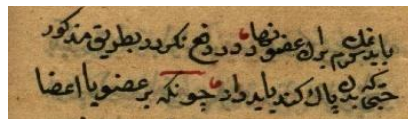 باید غسل کردم بران عضو و نهاد و در وضع نکردد بطریق مذکور
حتی که بدن پاک کند باید داد چونکه بر عضو یا اعضا